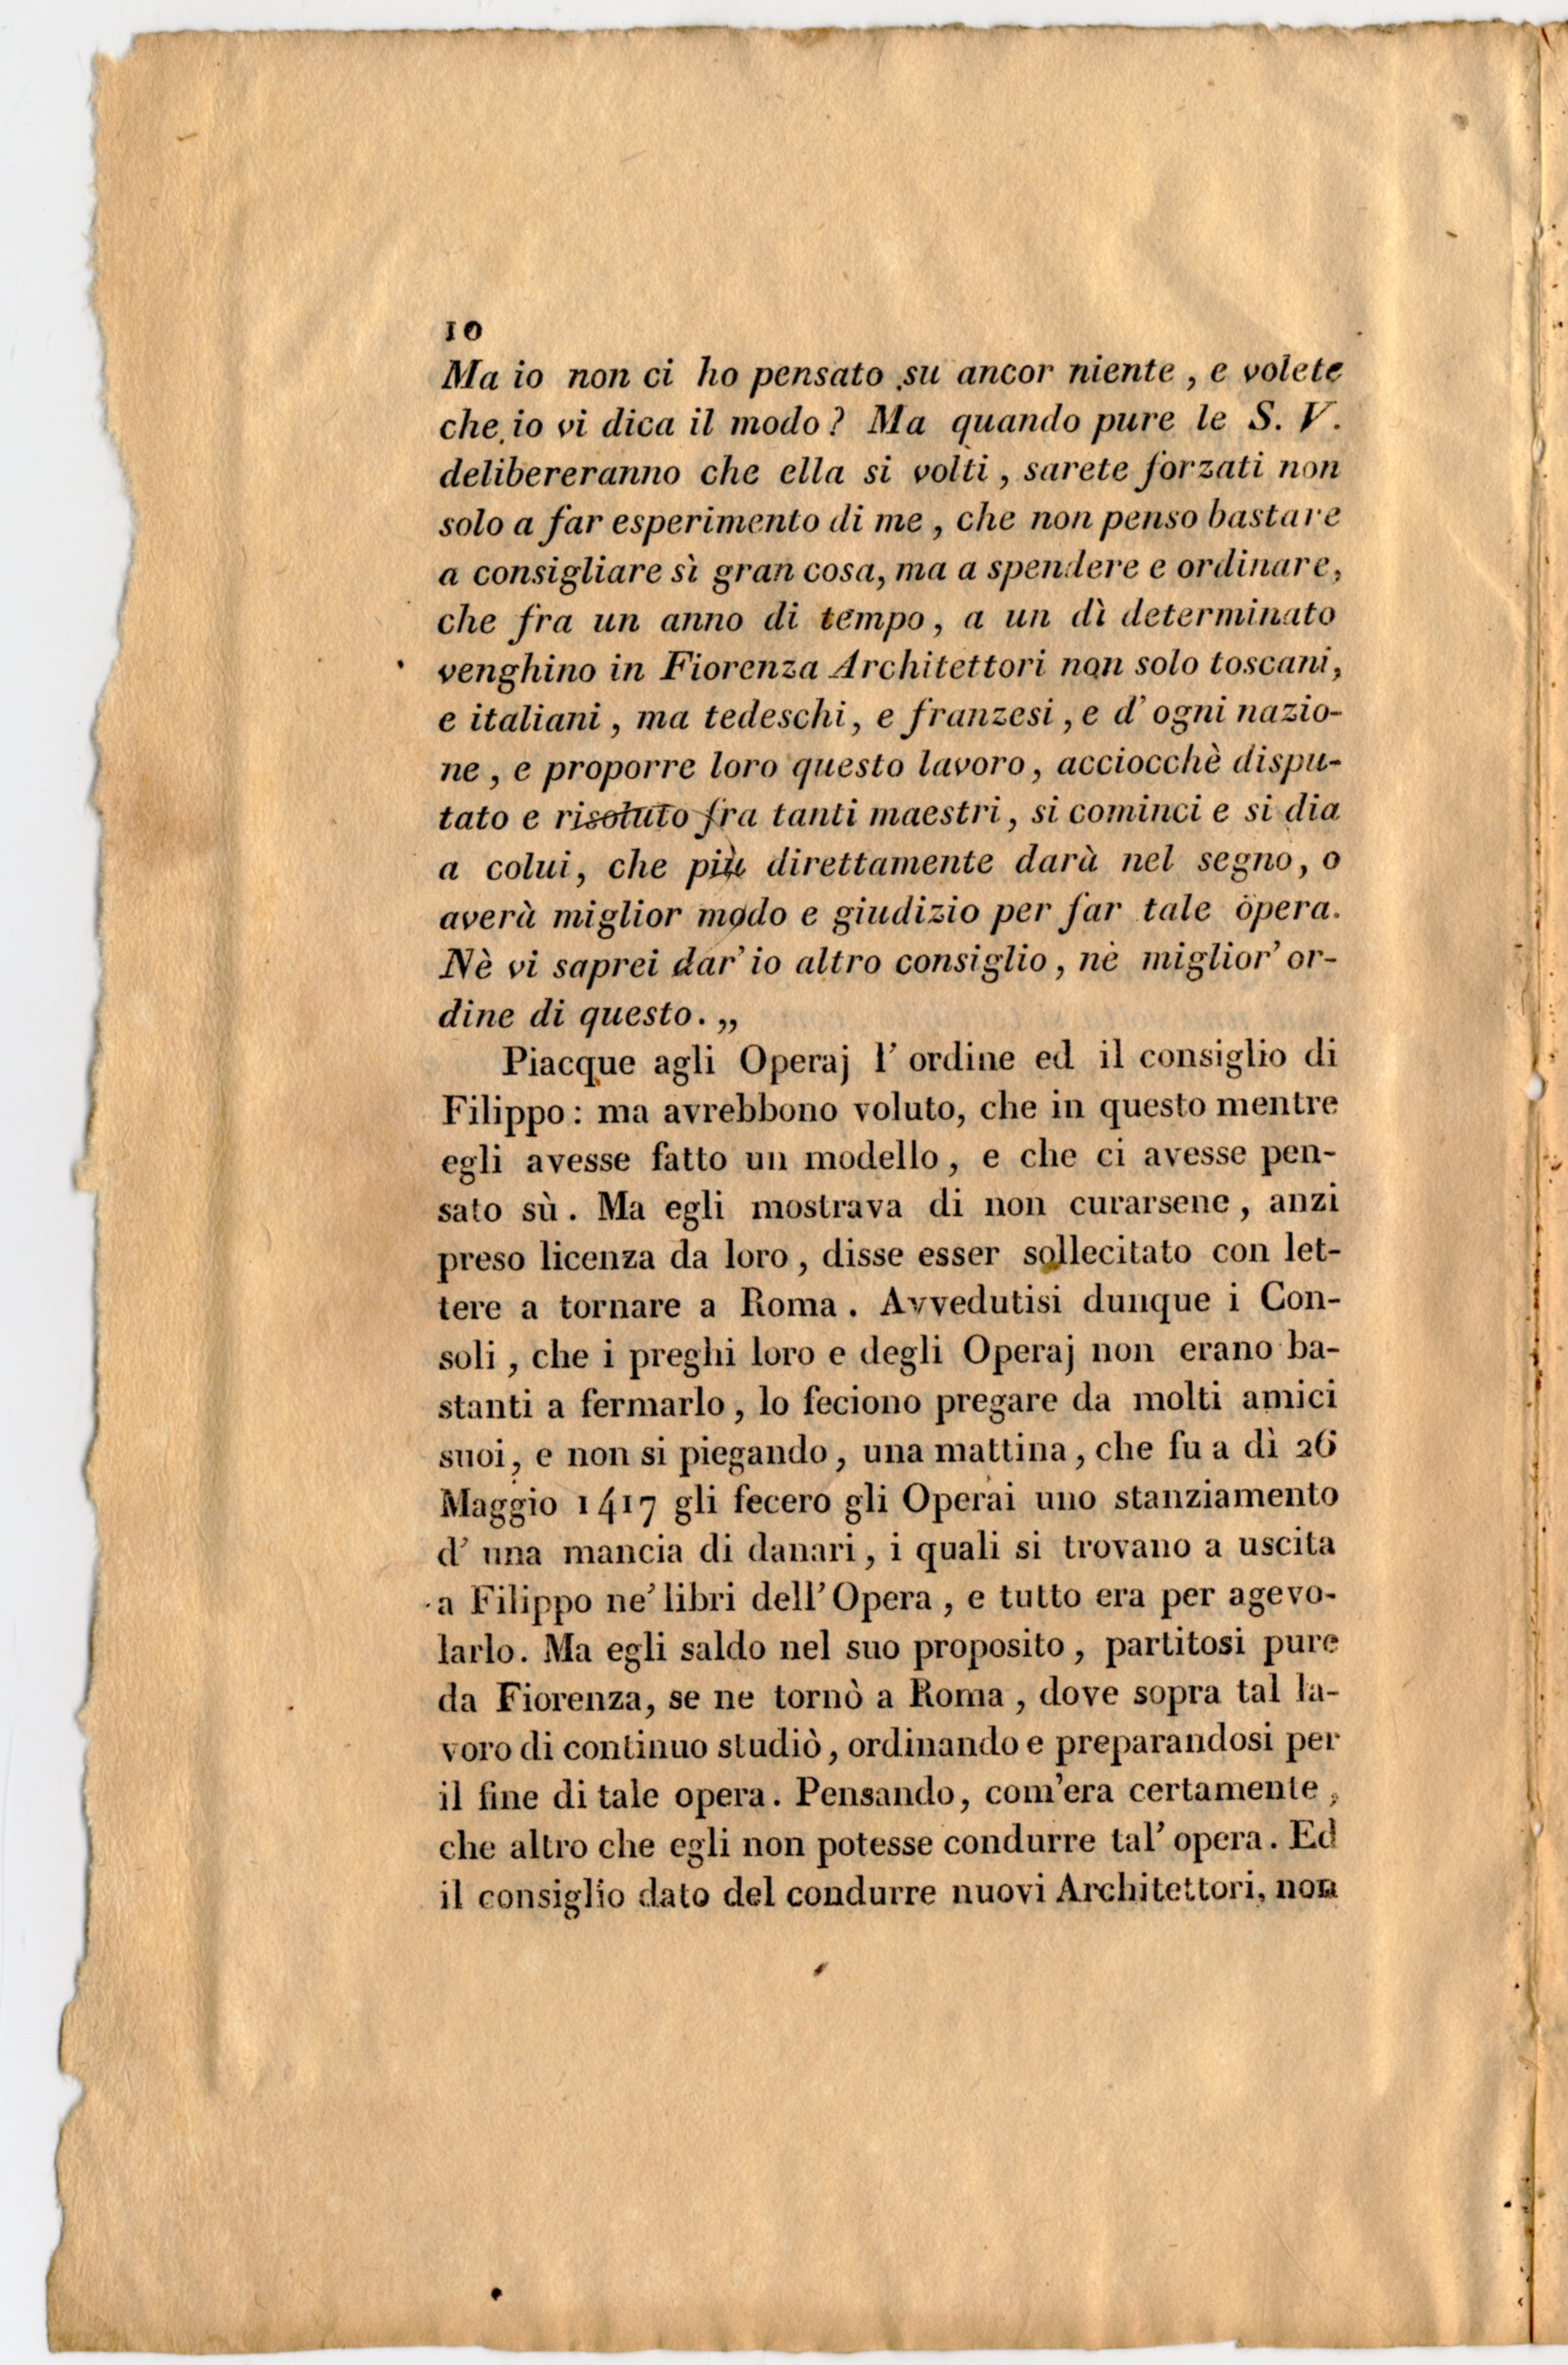 10
Ma io non ci ho pensato su ancor niente , e volete
che io vi dica il modo ? Ma quando pure le S. V.
delibereranno che ella si volti , sarete forzati non
solo a far esperimento di me , che non penso bastare
a consigliare sì gran cosa, ma a spendere e ordinare,
che fra un anno di tempo, a un dì determinato
venghino in Fiorenza Architettori non solo toscani,
e italiani , ma tedeschi, e franzesi , e d' ogni nazio-
ne , e proporre loro questo lavoro, acciocchè dispu-
tato e risoluto fra tanti maestri, si cominci e si dia
a colui, che più direttamente darà nel segno, o
averà miglior modo e giudizio per far tale opera.
Nè vi saprei dar' io altro consiglio , nè miglior' or-
dine di questo. „
Piacque agli Operaj l' ordine ed il consiglio di
Filippo : ma avrebbono voluto, che in questo mentre
egli avesse fatto un modello , e che ci avesse pen-
sato sù . Ma egli mostrava di non curarsene , anzi
preso licenza da loro , disse esser sollecitato con let-
tere a tornare a Roma . Avvedutisi dunque i Con-
soli , che i preghi loro e degli Operaj non erano ba-
stanti a fermarlo , lo feciono pregare da molti amici
suoi, e non si piegando , una mattina , che fu a dì 26
Maggio 1417 gli fecero gli Operai uno stanziamento
d' una mancia di danari , i quali si trovano a uscita
a Filippo ne' libri dell' Opera , e tutto era per agevo-
larlo. Ma egli saldo nel suo proposito , partitosi pure
da Fiorenza, se ne tornò a Roma , dove sopra tal la-
voro di continuo studiò , ordinando e preparandosi per
il fine di tale opera. Pensando, com'era certamente ,
che altro che egli non potesse condurre tal' opera. Ed
il consiglio dato del condurre nuovi Architettori, non